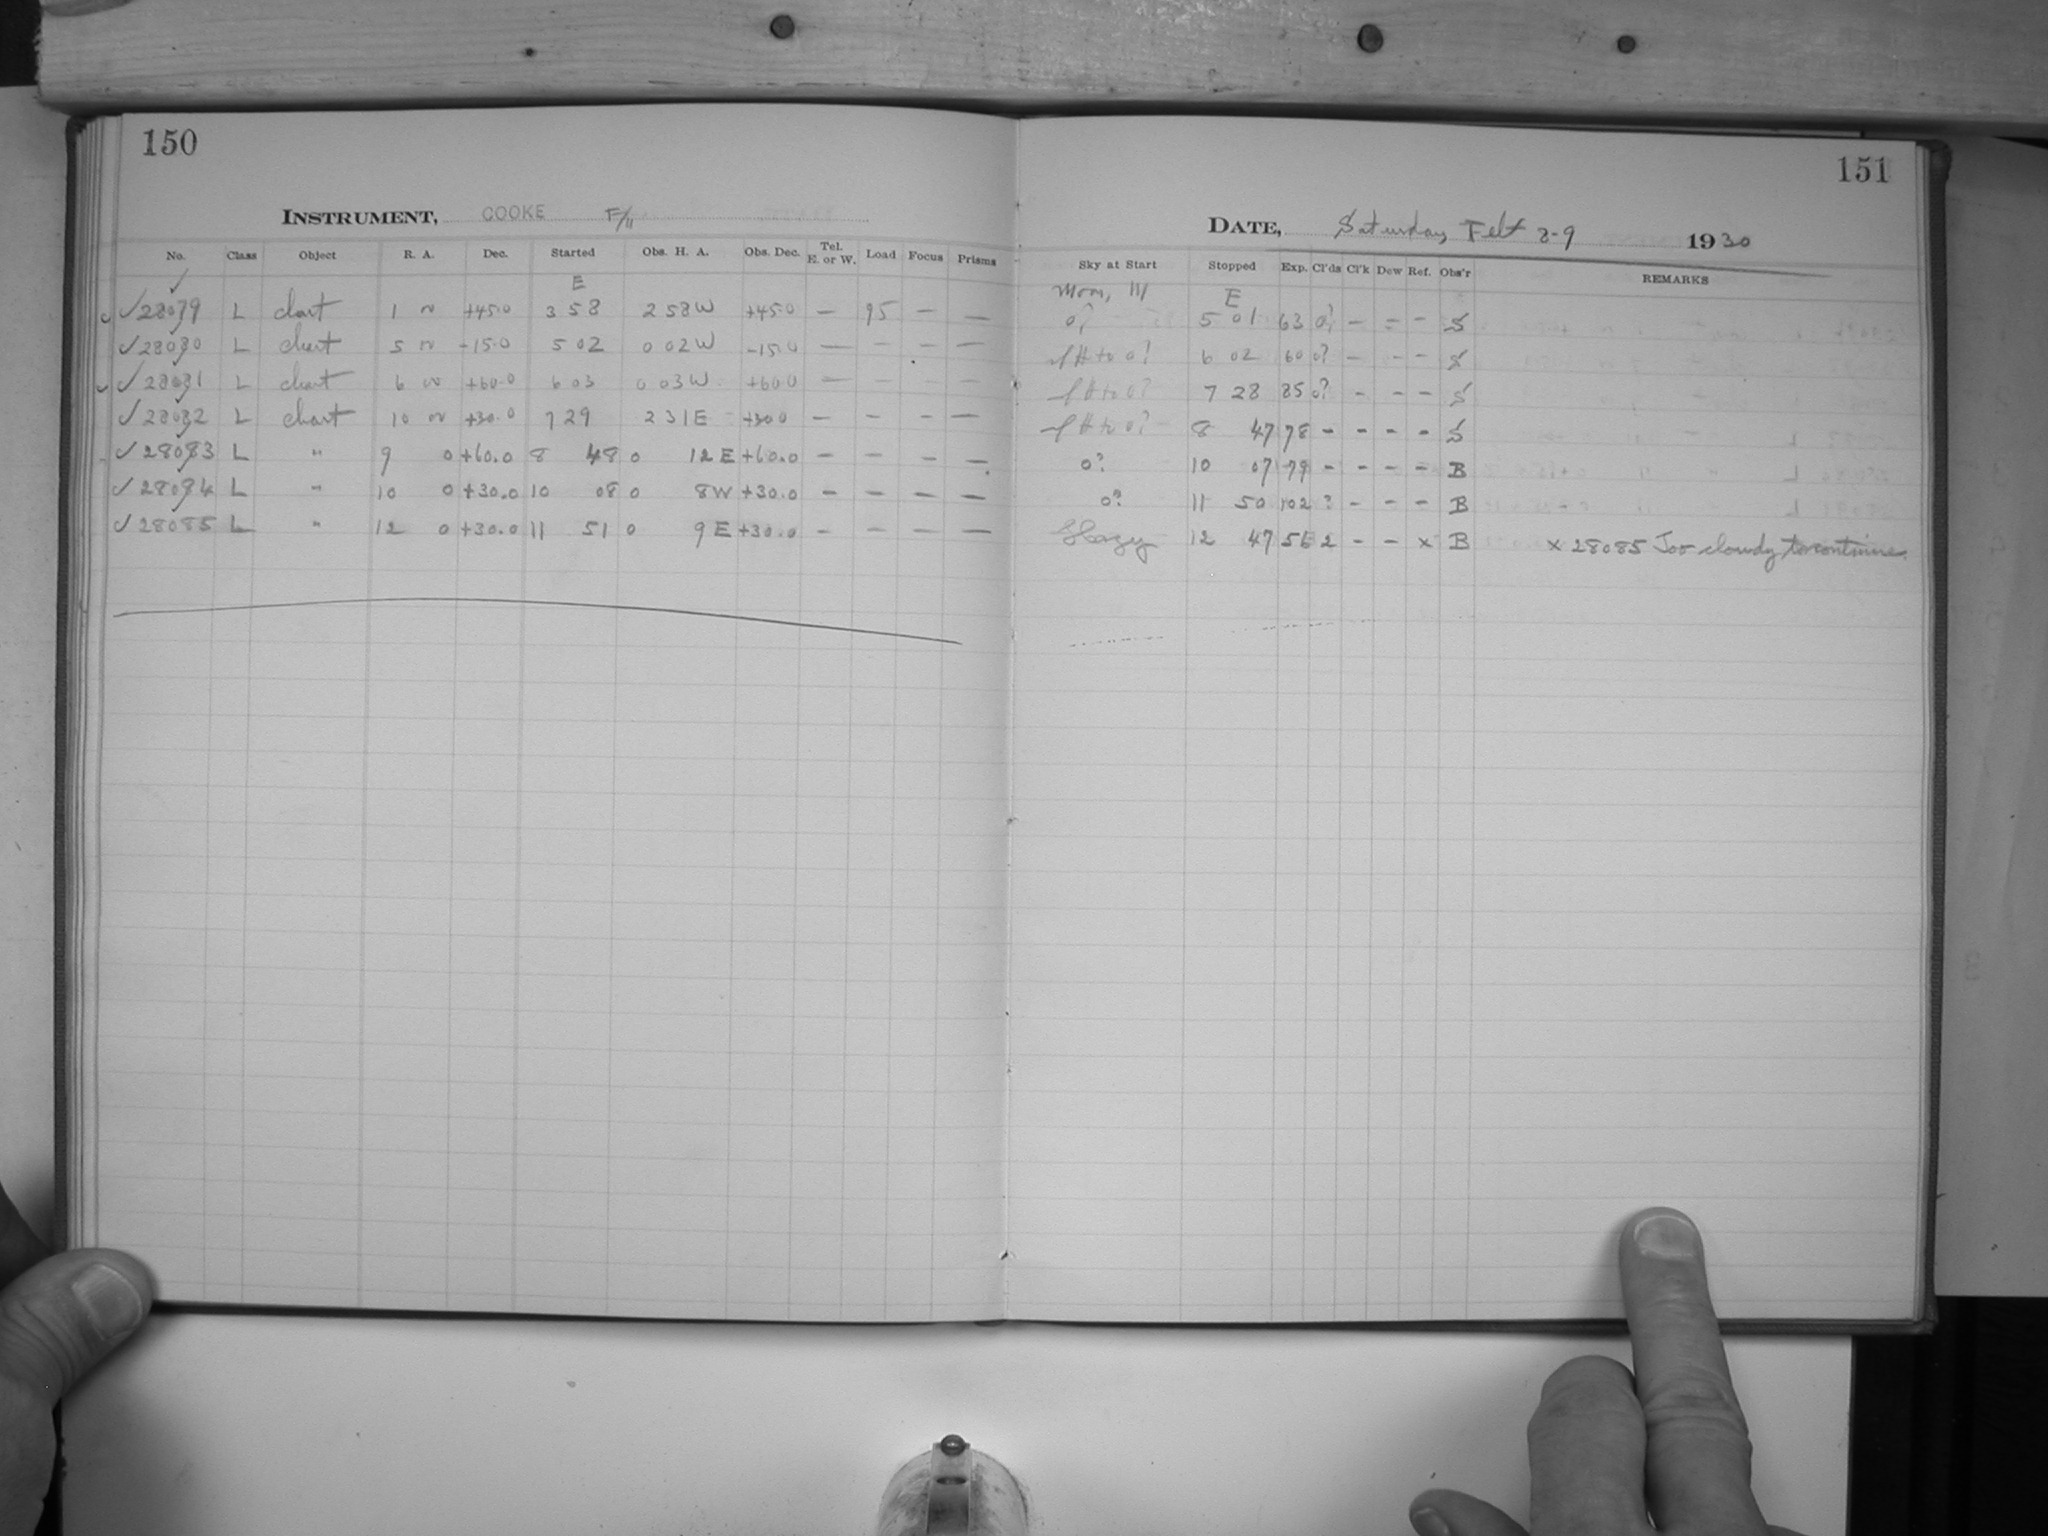 150
INSTRUMENT, COOKE F/11
No. Class Object R. A. Dec. Started Obs. H. A. Obs. Dec. Tel. E. or W. Load Focus Prisms
E
✓28079 L chart 1 ~ +45.0 3 58 2 58W +45.0 — 95 — —
✓28080 L chart 5 ~ -15.0 5 02 0 02W -15.0 — — — —
✓28081 L chart 6 ~ +60.0 6 03 0 03W +60.0 — — — —
✓28082 L chart 10 ~ +30.0 7 29 2 31E +30.0 — — — —
✓28083 L " 9 0 +60.0 8 48 0 12E +60.0 — — — —
✓28084 L " 10 0 +30.0 10 08 0 8W +30.0 — — — —
✓28085 L " 12 0 +30.0 11 51 0 9E +30.0 — — — —
151
DATE, Saturday Feb 8-9 1930
Sky at Start Stopped Exp. Cl'ds Cl'k Dew Ref. Obs'r REMARKS
Moon, E
0? 5 01 63 0? — — — S
to 0? 6 02 60 0? — — — S
to 0? 7 28 85 0? — — — S
to 0? 8 47 78 - - - - S
0? 10 07 79 - - - - B
0? 11 50 102 ? - - - B
Hazy 12 47 56 2 - - x B x 28085 Too cloudy to continue.